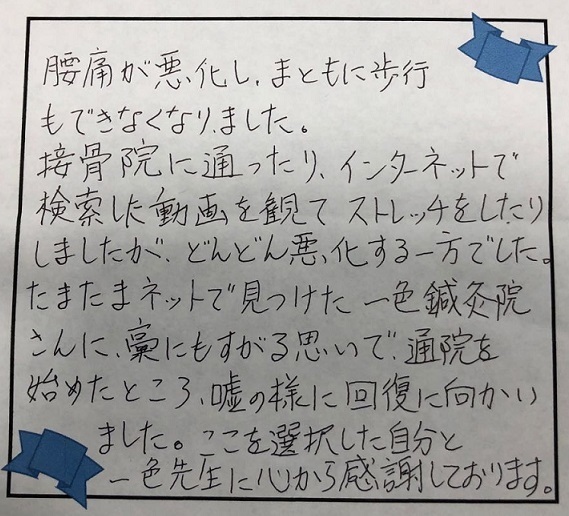 腰痛が悪化し、まともに歩行
もできなくなりました。
接骨院に通ったり、インターネットで
検索した動画を観てストレッチをしたり
しましたが、どんどん悪化する一方でした。
たまたまネットで見つけた一色鍼灸院
さんに、藁にもすがる思いで、通院を
始めたところ、嘘の様に回復に向かい
ました。ここを選択した自分と
一色先生に心から感謝しております。